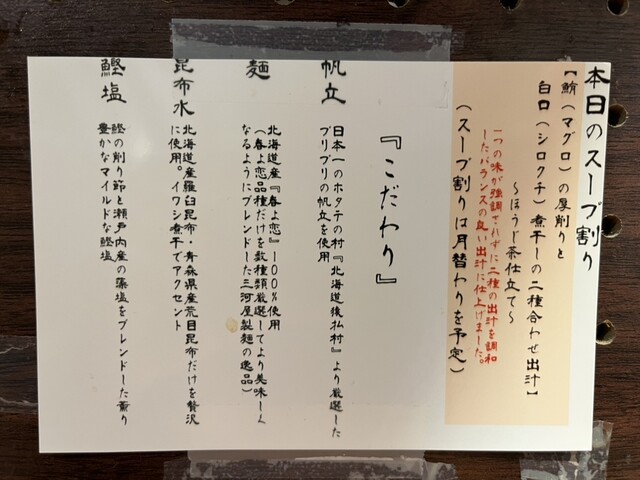 本日のスープ割り
【鮪(マグロ)の厚削りと
白口(シログチ)煮干しの二種合わせ出汁】
~ほうじ茶仕立て~
一つの味が強調されずに二種の出汁を調和
したバランスの良い出汁に仕上げました。
(スープ割りは月替わりを予定)
『こだわり』
帆立
日本一のホタテの村『北海道猿払村』より厳選した
プリプリの帆立を使用
麺
北海道産『春よ恋』100%使用
(春よ恋品種だけを数種類厳選してより美味しく
なるようにブレンドした三河屋製麺の逸品)
昆布水
北海道産羅臼昆布・青森県産荒目昆布だけを贅沢
に使用。イワシ煮干でアクセント
鰹塩
鰹の削り節と瀬戸内産の藻塩をブレンドした薫り
豊かなマイルドな鰹塩